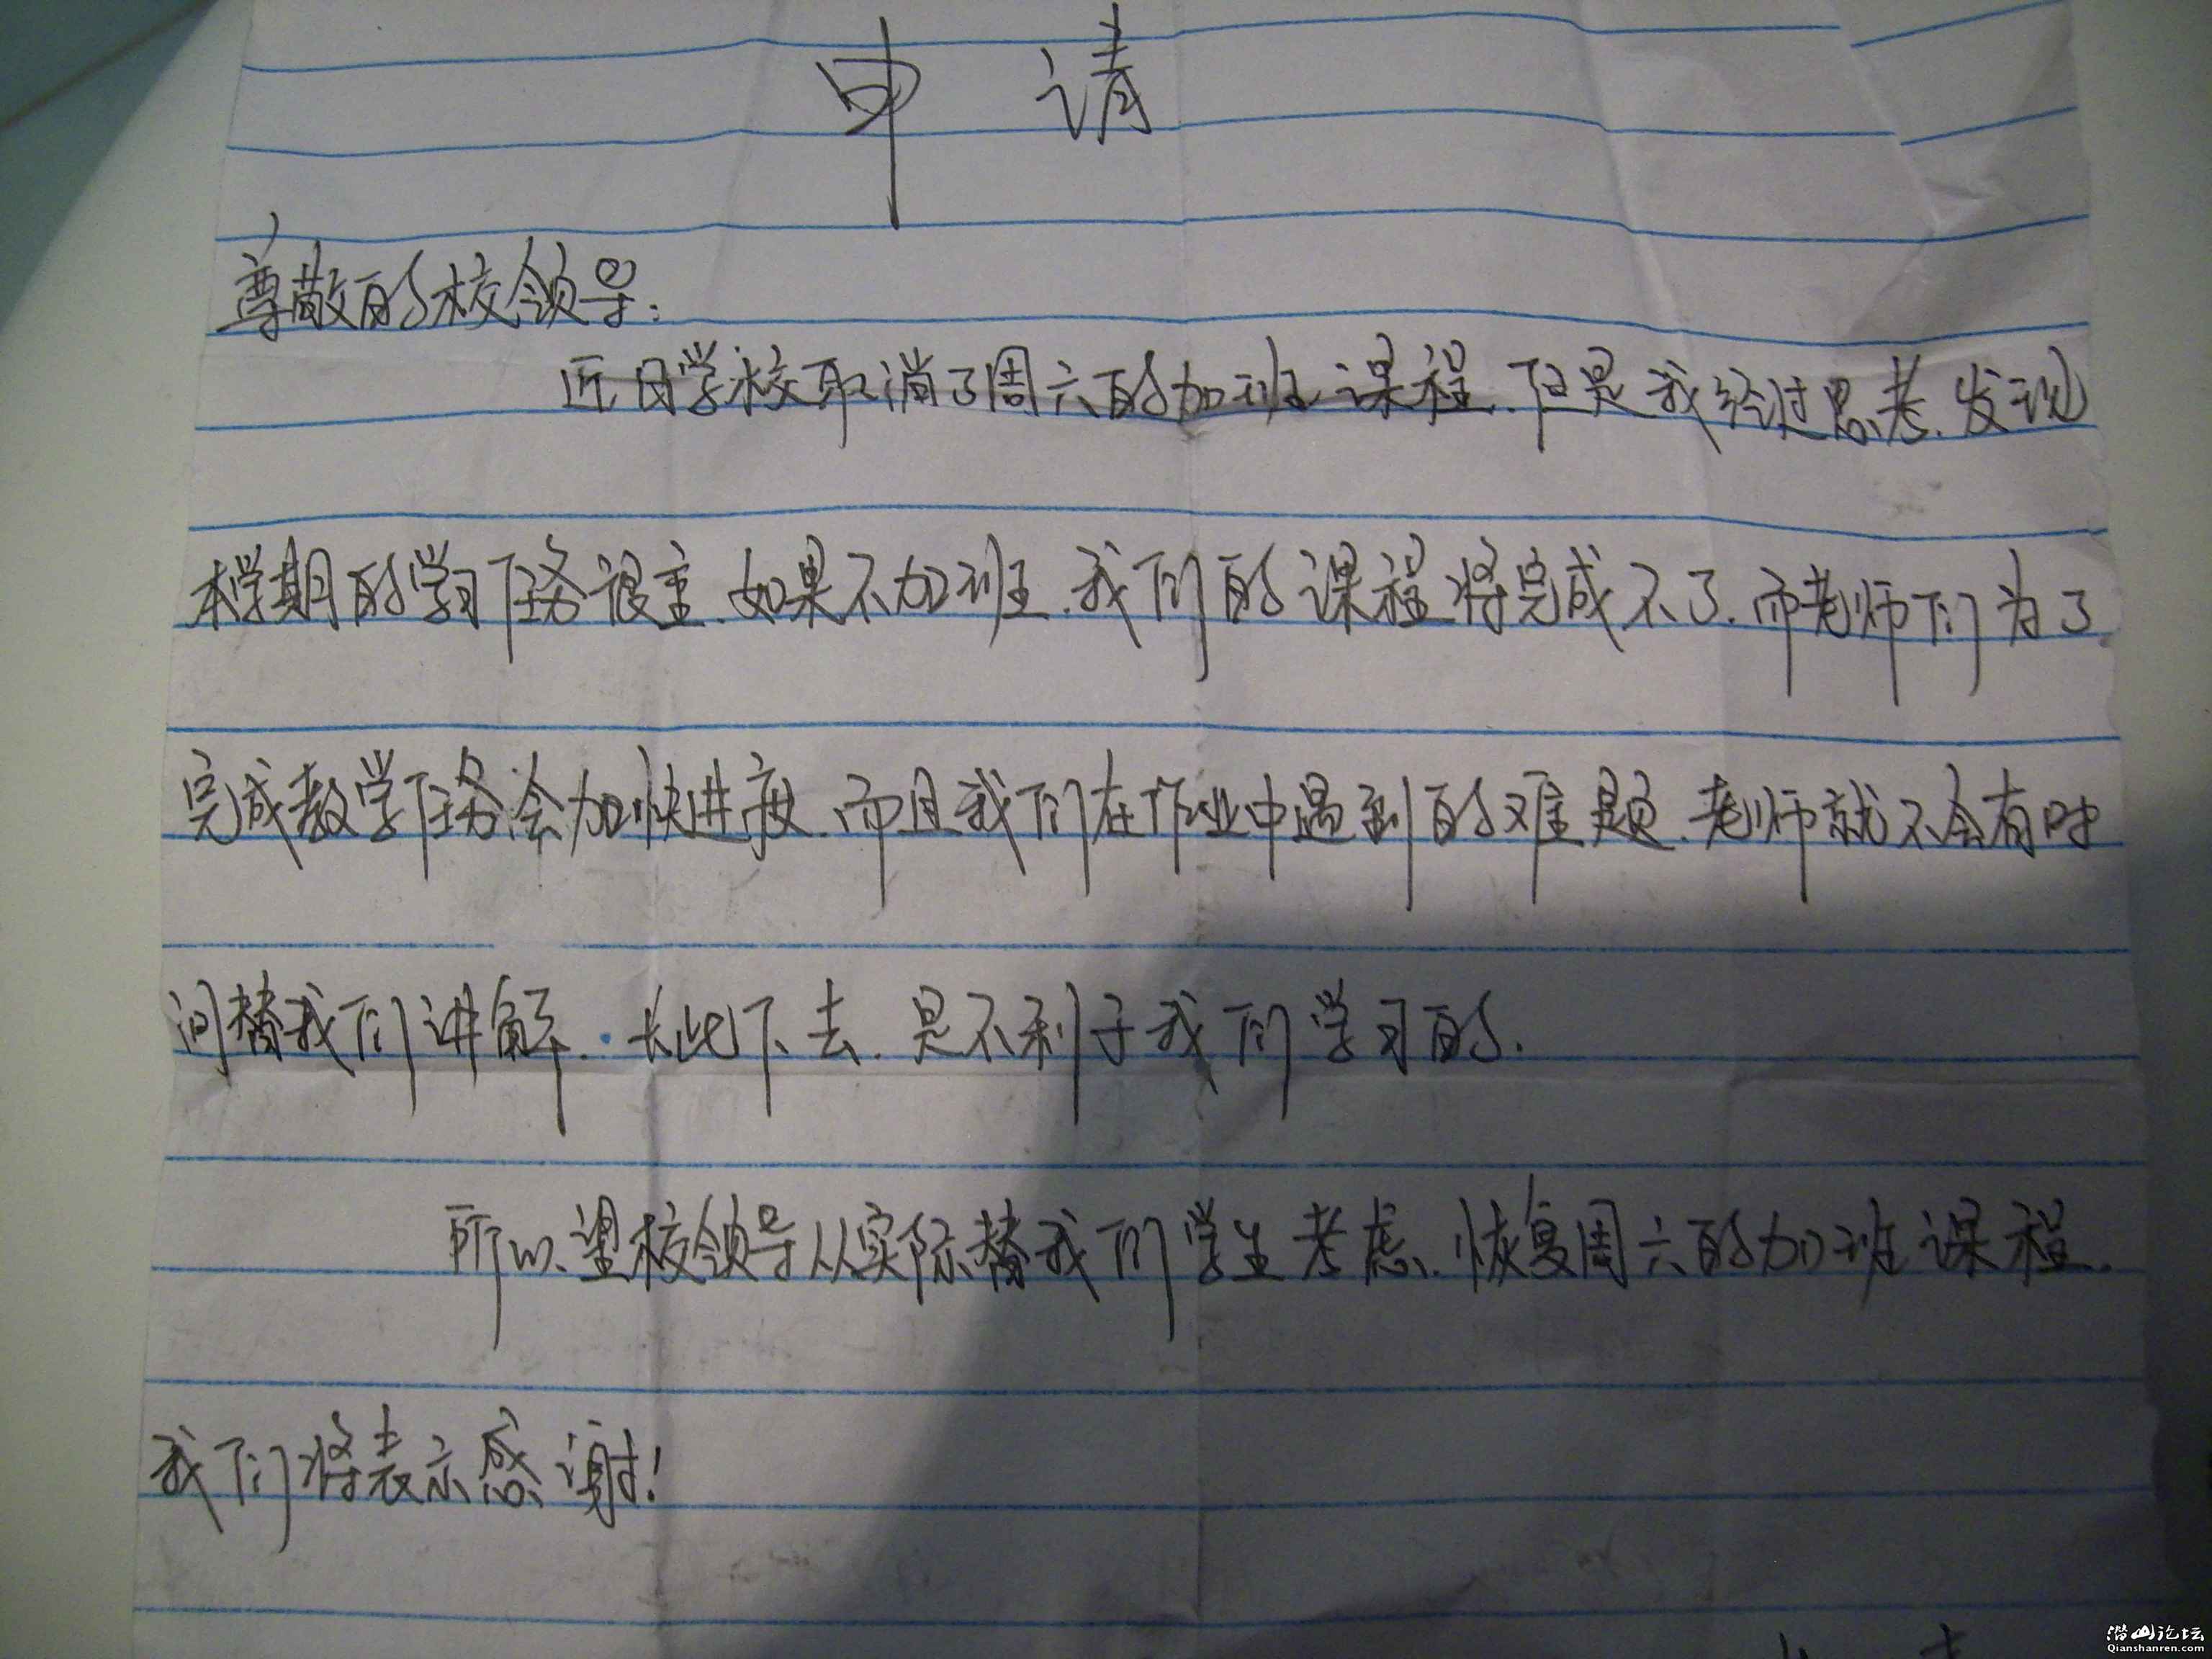 申 请
尊敬的校领导:
近日学校取消了周六的加班课程.但是我经过思考.发现
本学期的学习任务很重.如果不加班.我们的课程将完成不了.而老师们为了
完成教学任务会加快进度.而且我们在作业中遇到的难题.老师就不会有时
间替我们讲解.长此下去.是不利于我们学习的.
所以望校领导从实际替我们学生考虑.恢复周六的加班课程.
我们将表示感谢!
潜山论坛
Qianshanren.com